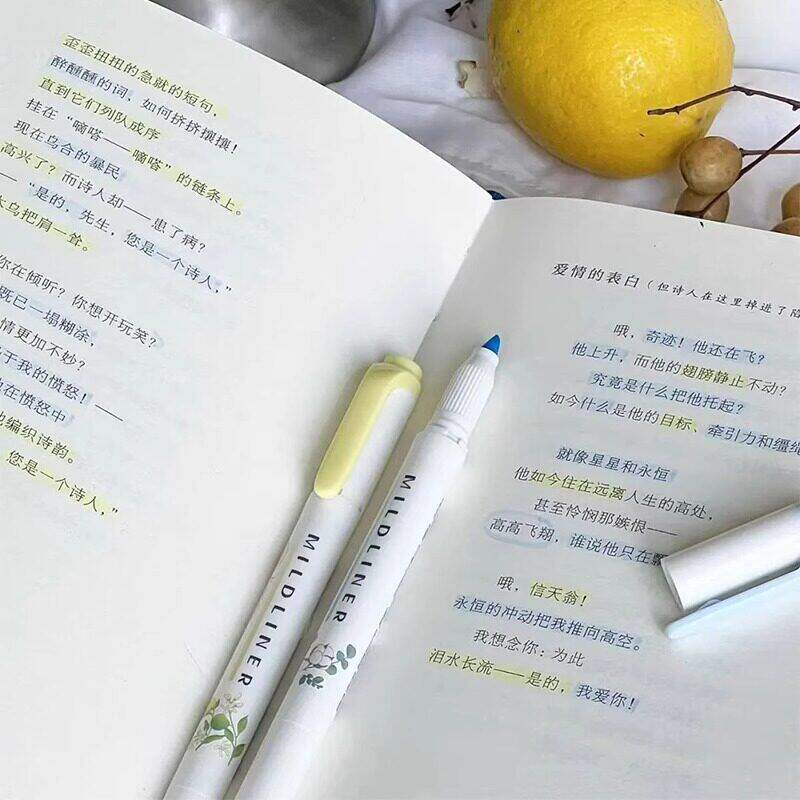 歪歪扭扭的急就的短句，
醉醺醺的词，如何挤挤攘攘！
直到它们列队成序
挂在“嘀嗒——嘀嗒”的链条上。
现在乌合的暴民
高兴了？而诗人却——患了病？
“是的，先生，您是一个诗人，”
鸟把肩一耸。
你在倾听？你想开玩笑？
既已一塌糊涂，
情更加不妙？
于我的愤怒！——
在愤怒中
编织诗韵。
您是一个诗人，”
爱情的表白（但诗人在这里掉进了陷
哦，奇迹！他还在飞？
他上升，而他的翅膀静止不动？
究竟是什么把他托起？
如今什么是他的目标、牵引力和缰绳
就像星星和永恒
他如今住在远离人生的高处，
甚至怜悯那嫉恨——
高高飞翔，谁说他只在飘
哦，信天翁！
永恒的冲动把我推向高空。
我想念你：为此
泪水长流——是的，我爱你！
MILDLINER
MILDLINER